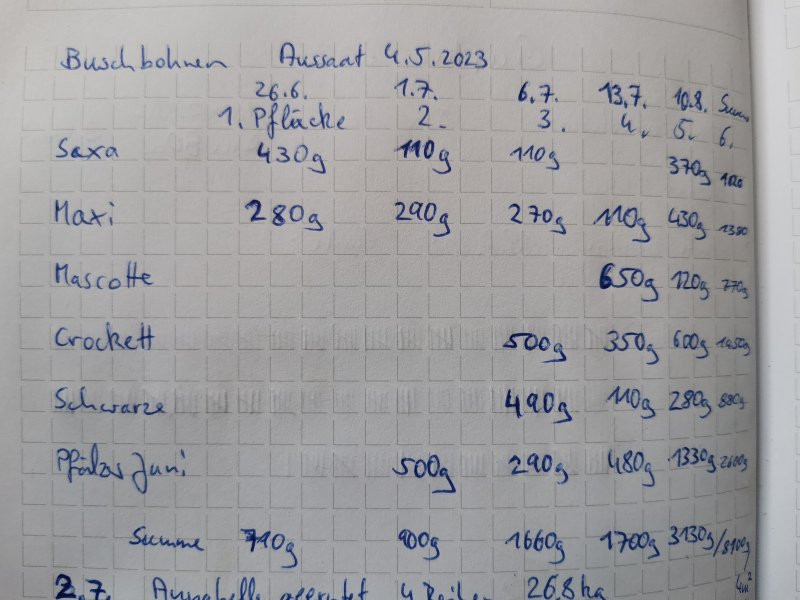 Buschbohnen Aussaat 4.5.2023
26.6. 1.7. 6.7. 13.7. 10.8. Summe
1. Pflücke 2. 3. 4. 5. 6.
Saxa 430g 110g 110g 370g 1020
Maxi 280g 290g 270g 110g 430g 1380
Mascotte 650g 120g 770g
Crockett 500g 350g 600g 1450g
Schwarze 490g 110g 280g 880g
Pfälzer Juni 500g 290g 480g 1330g 2600g
Summe 710g 900g 1660g 1700g 3130g/8100g
2.7. Annabelle geerntet 4 Reihen 26,8kg 4m²